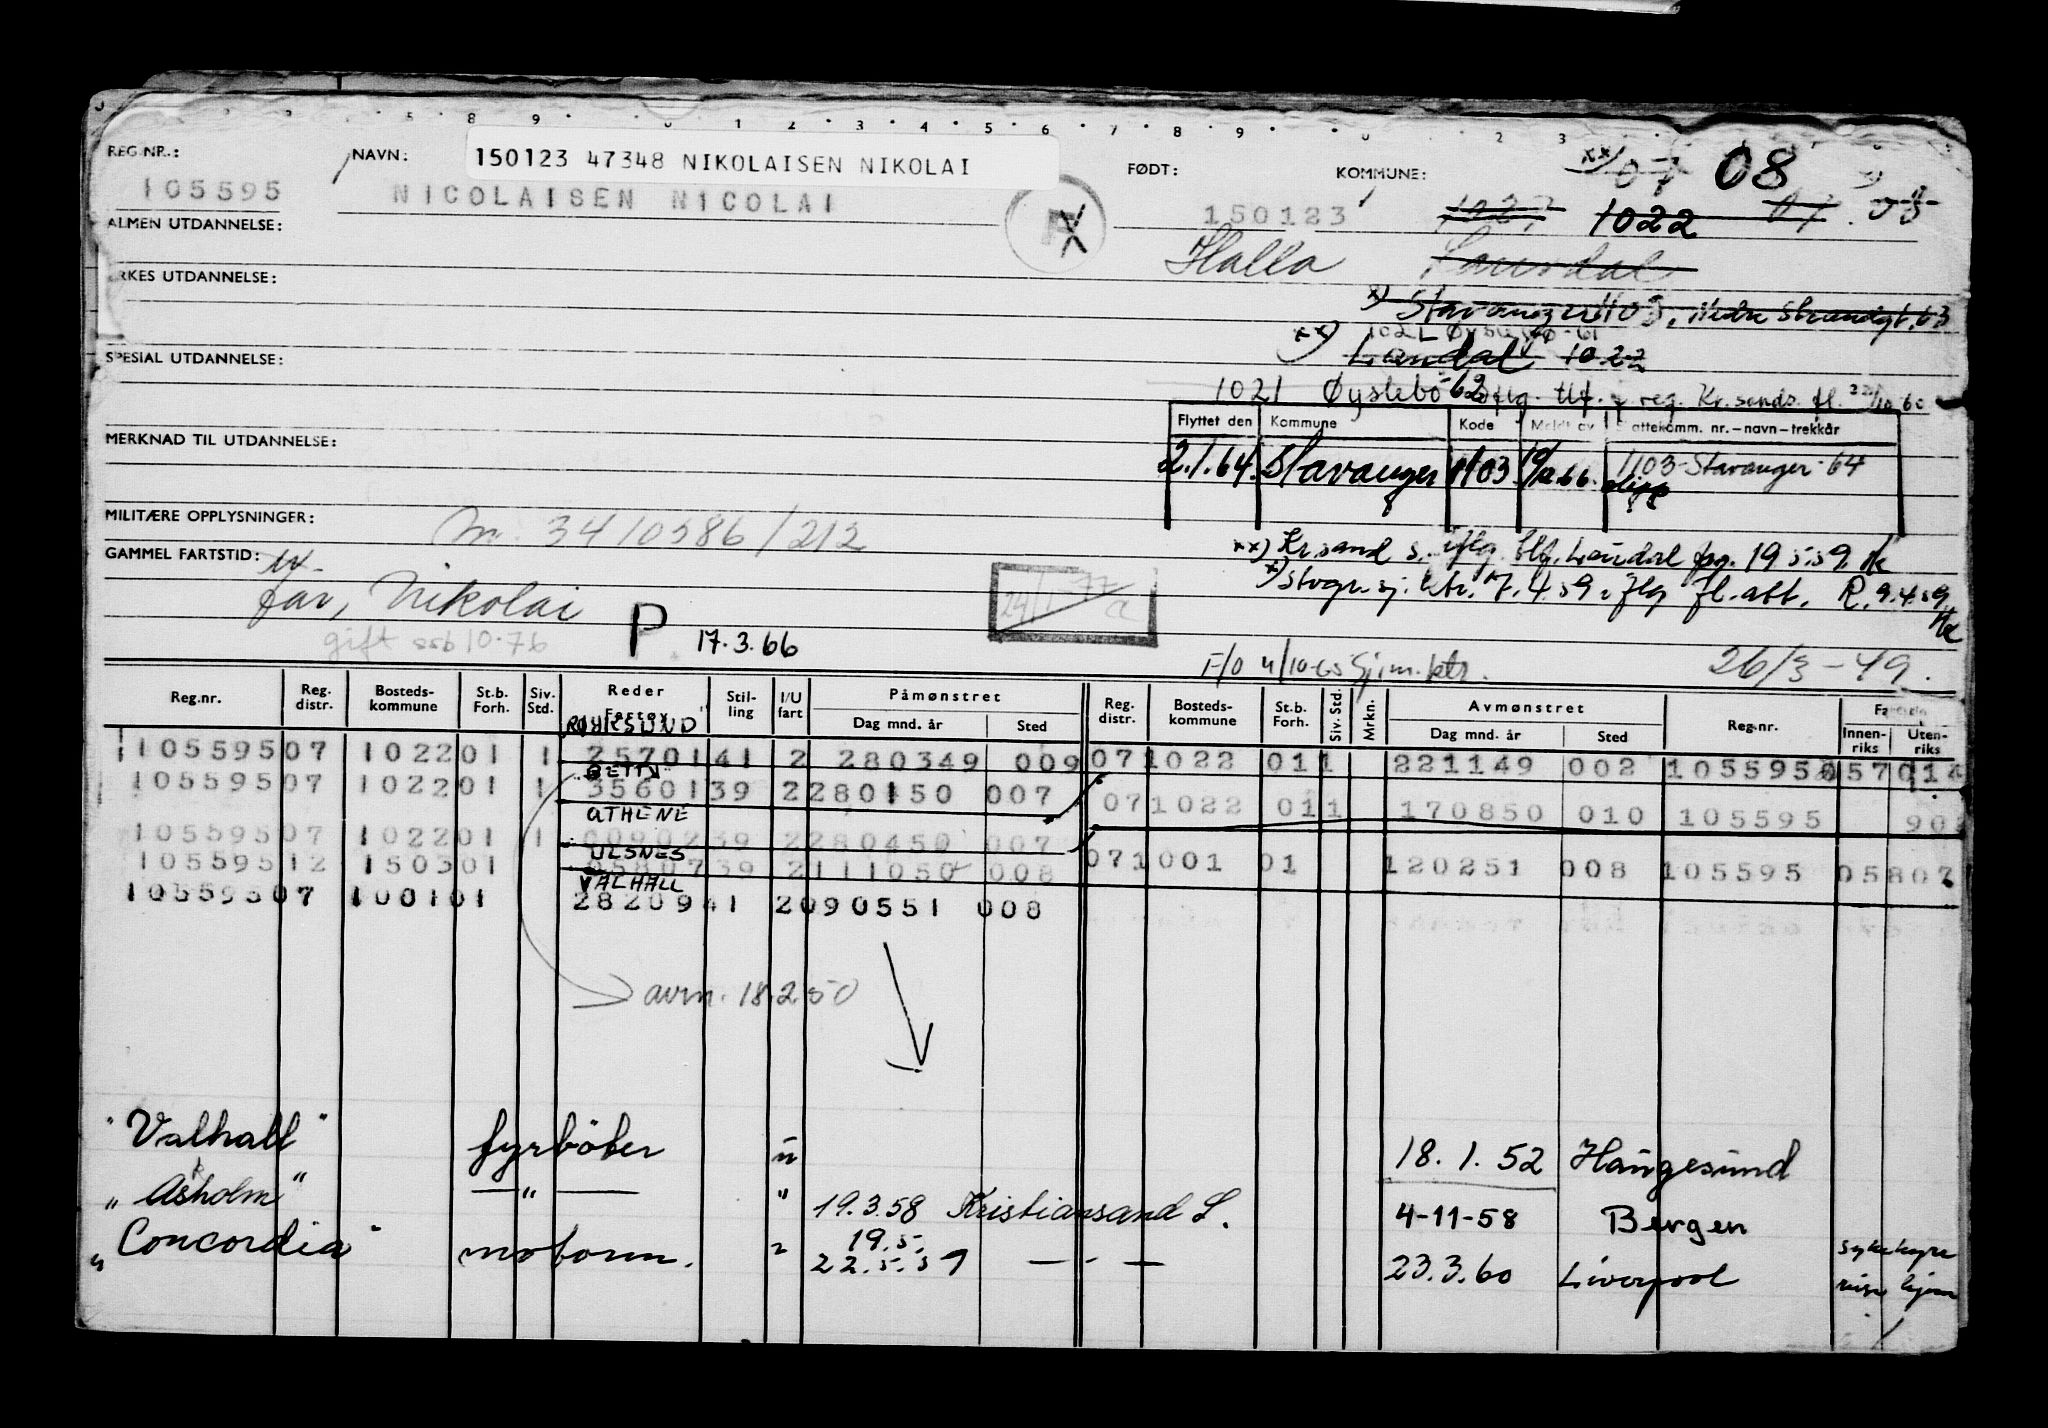 REG.NR.: NAVN: 150123 47348 NIKOLAISEN NIKOLAI FØDT: KOMMUNE: xx) 07 08
105595 NICOLAISEN NICOLAI 150123 1027 1022 07
ALMEN UTDANNELSE: Halla Laudal
YRKES UTDANNELSE:
x) Stavanger 1103, Nedre Strandgt. 63
1021 Øyslebø-61
xx) Laudal 1022
SPESIAL UTDANNELSE:
1021 Øyslebø-62 iflg. tlf. reg. Kr.sands. fl. 22/10 60
Flyttet den Kommune Kode Meldt av Skattekomm. nr.–navn–trekkår
MERKNAD TIL UTDANNELSE:
2.1.64. Stavanger 1103 1103-Stavanger-64
MILITÆRE OPPLYSNINGER: nr. 3410586/212
GAMMEL FARTSTID:
xx) Kr.sand s. iflg. tlf. Laudal 19.5.59.
x) Stvgr. sj. ktr. 7.4.59 iflg fl.att. R. 9.4.59
far, Nikolai
24/1-77
gift ssb 10.76 P 17.3.66
F/O 4/10-65 Sjøm.ktr.
26/3-49.
Reg.nr. Reg. distr. Bosteds-kommune St.b. Forh. Siv. Std. Reder Fartøy Stil-ling I/U fart Påmønstret Dag mnd. år Sted Reg. distr. Bosteds-kommune St.b. Forh. Siv. Std. Mrkn. Avmønstret Dag mnd. år Sted Reg.nr. Fartstid Innen-riks Uten-riks
RØYKSUND
105595 07 1022 01 1 25701 41 2 280349 009 07 1022 01 1 221149 002 105595 057014
BETTY
105595 07 1022 01 1 35601 39 2 280150 007 07 1022 01 1 170850 010 105595 90
ATHENE
105595 07 1022 01 1 00902 39 2 280450 007
ULSNES
105595 12 1503 01 05807 39 2 111050 008 07 1001 01 120251 008 105595 05807
VALHALL
105595 07 1001 01 28209 41 2 090551 008
avm. 18.2.50
"Valhall" fyrbøter u 18.1.52 Haugesund
"Asholm" —"— " 19.3.58 Kristiansand S. 4-11-58 Bergen
19.5.
"Concordia" motorm. " 22.5.59 — " — 23.3.60 Liverpool sykehyre
reise hjem